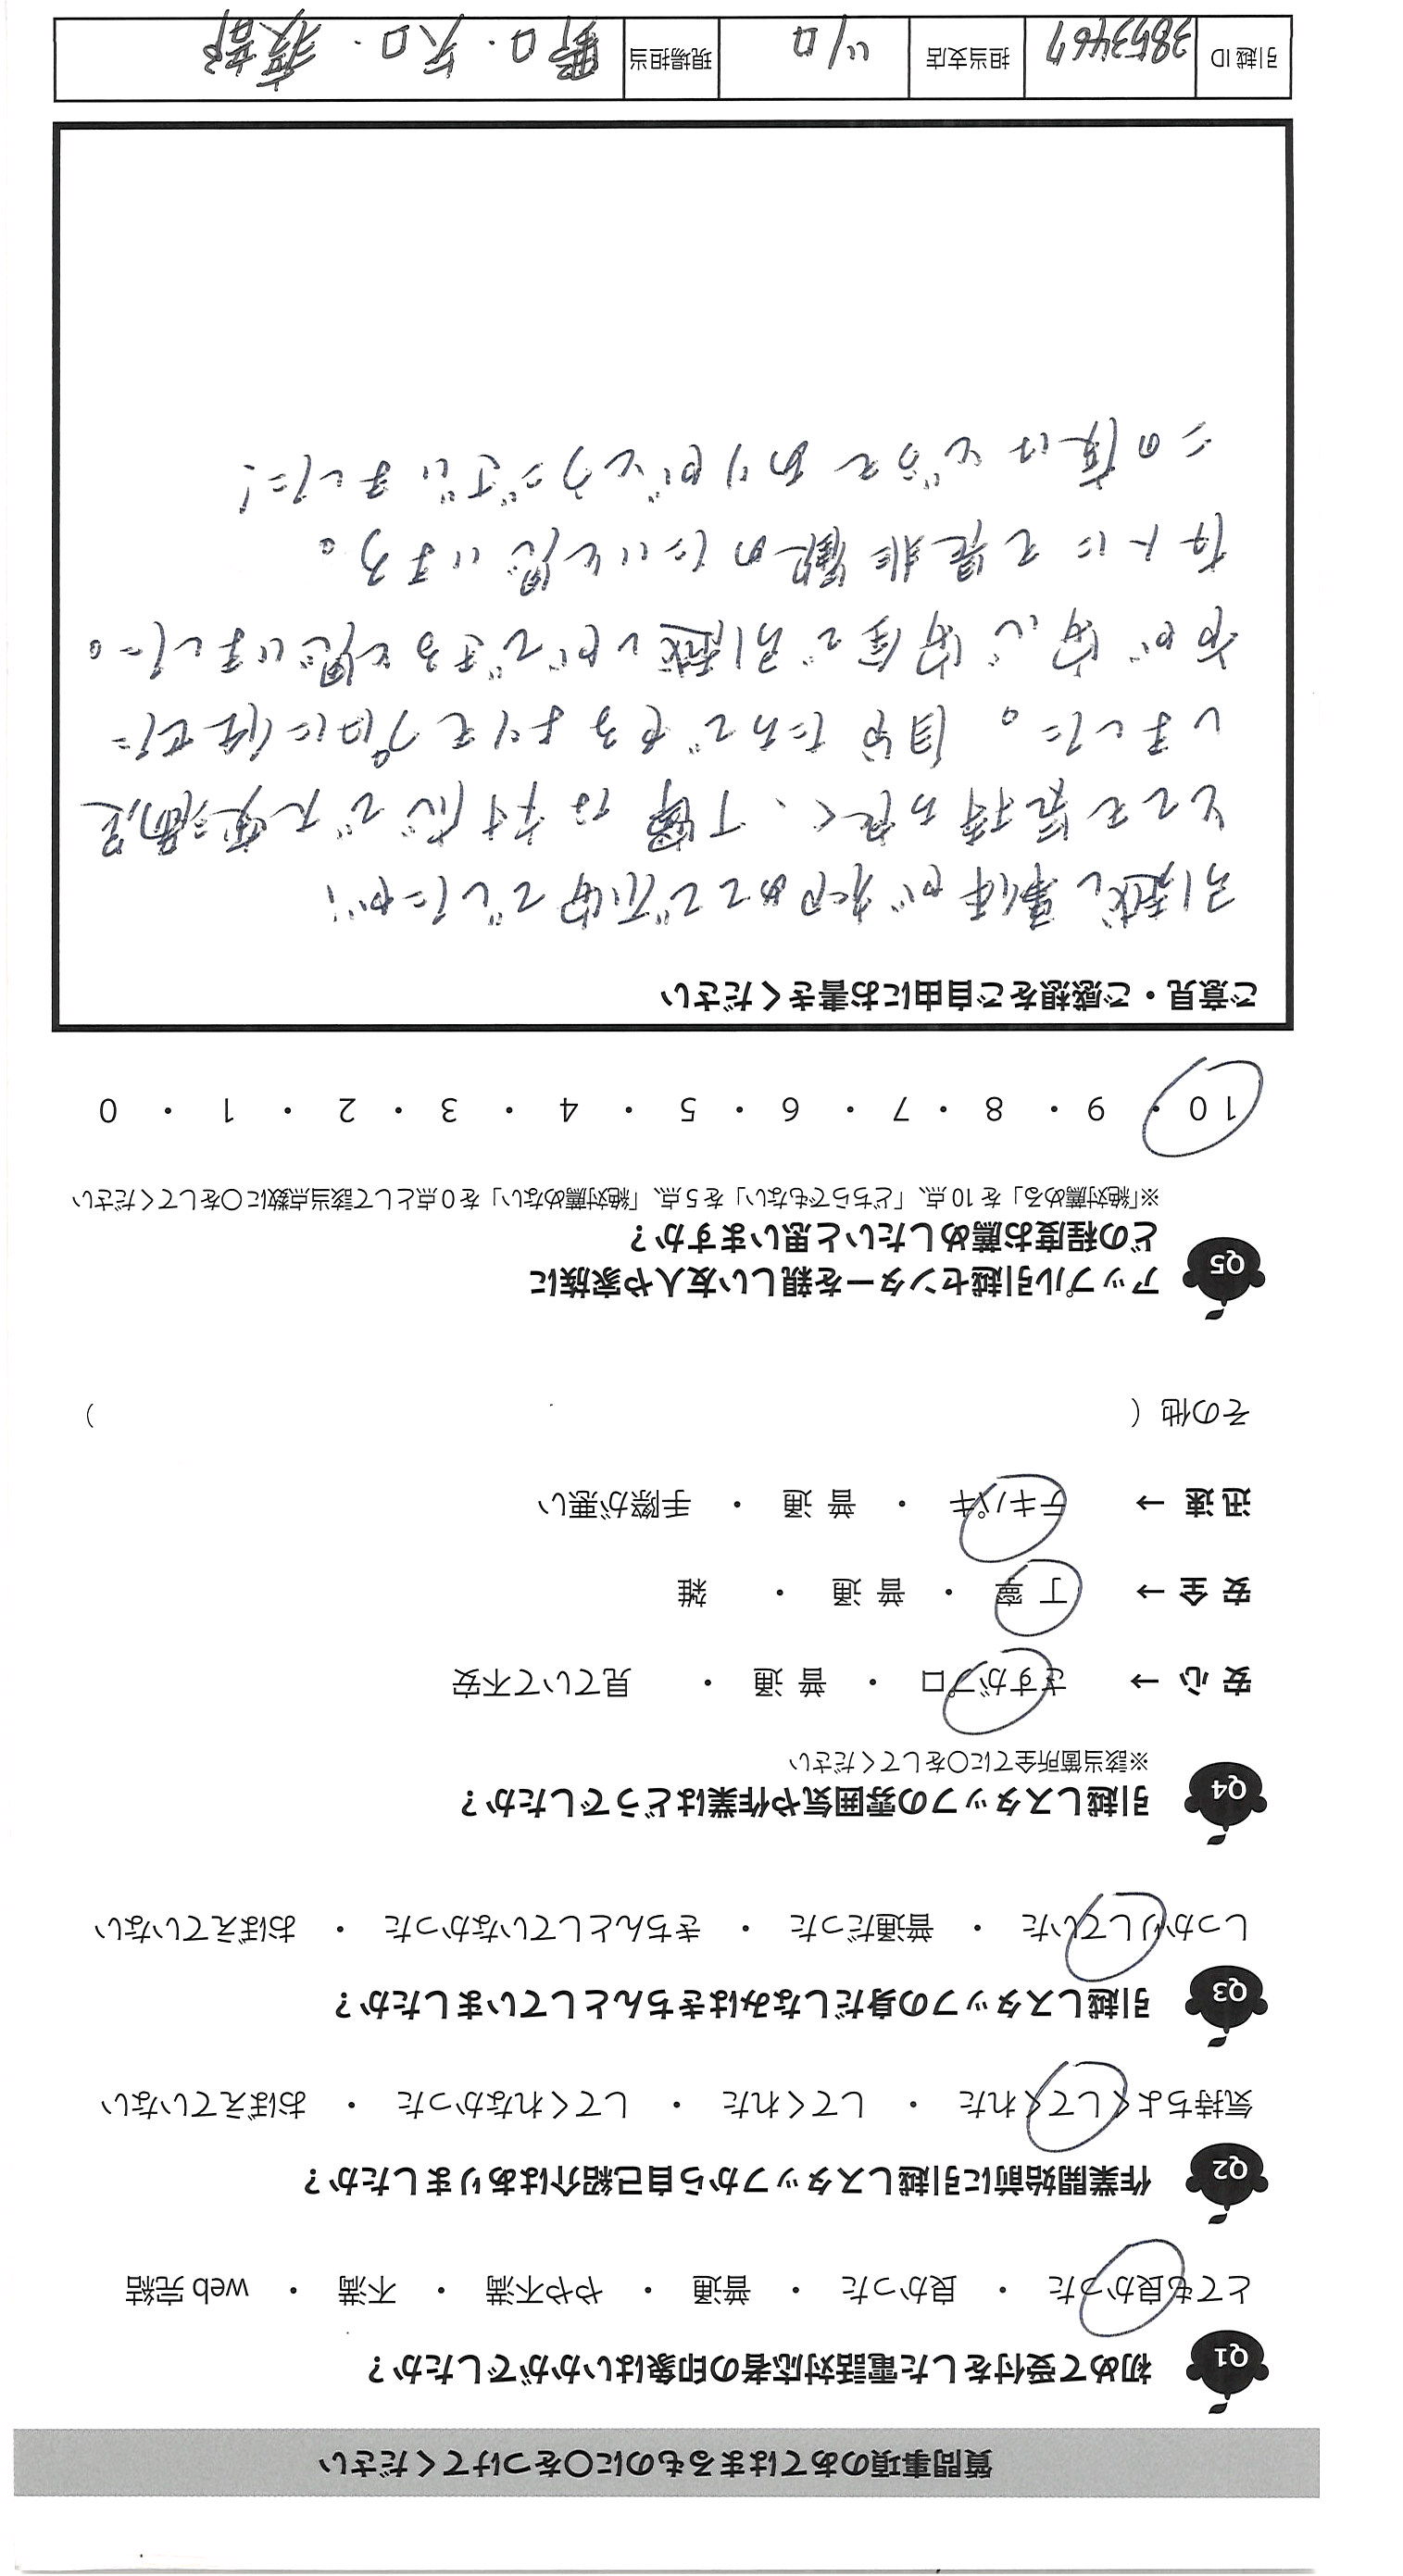 質問事項のあてはまるものに〇をつけてください
Q1 初めて受付をした電話対応者の印象はいかがでしたか？
とても良かった ・ 良かった ・ 普通 ・ やや不満 ・ 不満 ・ web 完結
Q2 作業開始前に引越しスタッフから自己紹介はありましたか？
気持ちよくしてくれた ・ してくれた ・ してくれなかった ・ おぼえていない
Q3 引越しスタッフの身だしなみはきちんとしていましたか？
しっかりしていた ・ 普通だった ・ きちんとしていなかった ・ おぼえていない
Q4 引越しスタッフの雰囲気や作業はどうでしたか？
※該当箇所全てに〇をしてください
安 心 → さすがプロ ・ 普 通 ・ 見ていて不安
安 全 → 丁 寧 ・ 普 通 ・ 雑
迅 速 → テキパキ ・ 普 通 ・ 手際が悪い
その他 （ ）
Q5 アップル引越センターを親しい友人や家族に
どの程度お薦めしたいと思いますか？
※「絶対薦める」を 10 点、「どちらでもない」を 5 点、「絶対薦めない」を 0 点として該当点数に〇をしてください
10 ・ 9 ・ 8 ・ 7 ・ 6 ・ 5 ・ 4 ・ 3 ・ 2 ・ 1 ・ 0
ご意見・ご感想をご自由にお書きください
引越し事体が初めてで不安でしたが、
とても気持ち良く、丁寧な対応で大変満足
しました。自分たちでやるよりもプロに任せた
方が安心安全で引越しができると思いました。
友人にも是非勧めたいと思います。
この度はどうもありがとうございました！
引越 ID 3853467 担当支店 現場担当 野口・矢口・服部